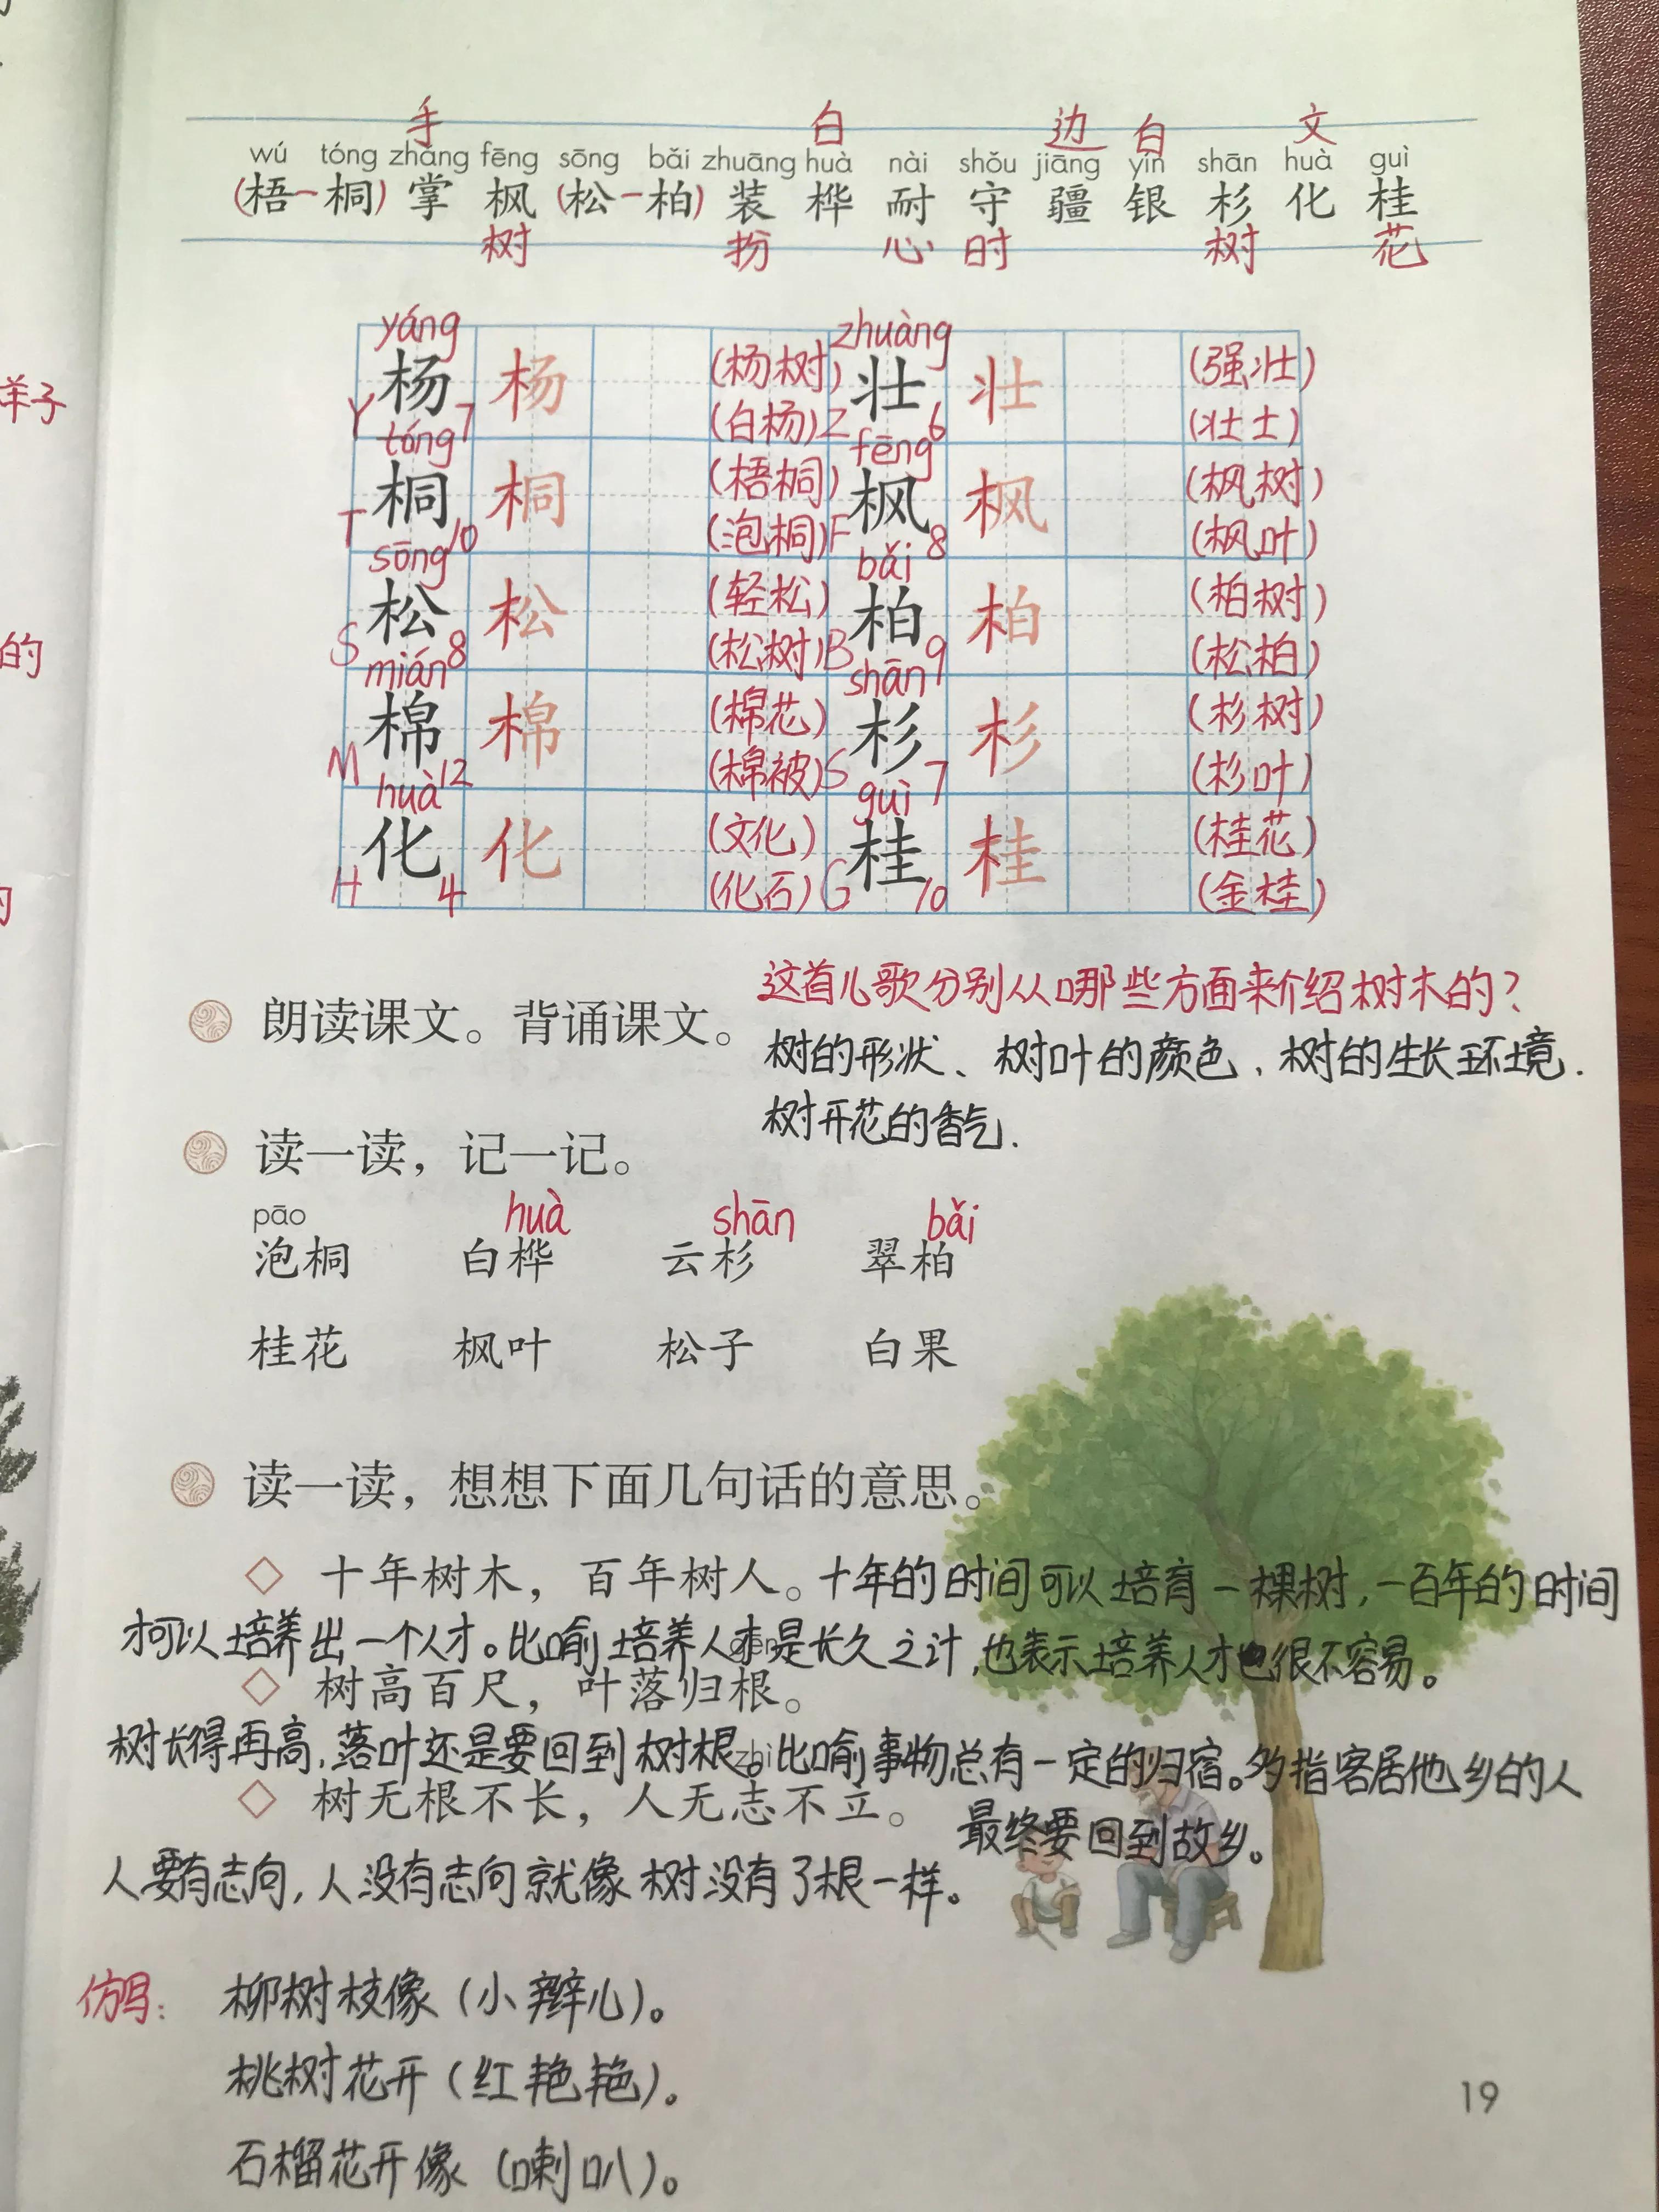 手 白 边 白 文
wú tóng zhǎng fēng sōng bǎi zhuāng huà nài shǒu jiāng yín shān huà guì
(梧-桐) 掌 枫 (松-柏) 装 桦 耐 守 疆 银 杉 化 桂
树 扮 心 时 树 花
yáng zhuàng
杨 杨 (杨树) 壮 壮 (强壮)
Y 7 (白杨) Z 6 (壮士)
tóng fēng
桐 桐 (梧桐) 枫 枫 (枫树)
T 10 (泡桐) F 8 (枫叶)
sōng bǎi
松 松 (轻松) 柏 柏 (柏树)
S 8 (松树) B 9 (松柏)
mián shān
棉 棉 (棉花) 杉 杉 (杉树)
M 12 (棉被) S 7 (杉叶)
huà guì
化 化 (文化) 桂 桂 (桂花)
H 4 (化石) G 10 (金桂)
羊子
的
这首儿歌分别从哪些方面来介绍树木的?
朗读课文。背诵课文。
树的形状、树叶的颜色、树的生长环境.
树开花的香气.
读一读，记一记。
pāo huà shān bǎi
泡桐 白桦 云杉 翠柏
桂花 枫叶 松子 白果
读一读，想想下面几句话的意思。
◇ 十年树木，百年树人。十年的时间可以培育一棵树,一百年的时间
才可以培养出一个人才。比喻培养人才是长久之计,也表示培养人才也很不容易。
gēn
◇ 树高百尺，叶落归根。
树长得再高,落叶还是要回到树根。比喻事物总有一定的归宿。多指客居他乡的人
最终要回到故乡。
zhì
◇ 树无根不长，人无志不立。
人要有志向,人没有志向就像树没有了根一样。
仿写: 柳树枝像(小辫儿)。
桃树花开(红艳艳)。
石榴花开像(喇叭)。
19